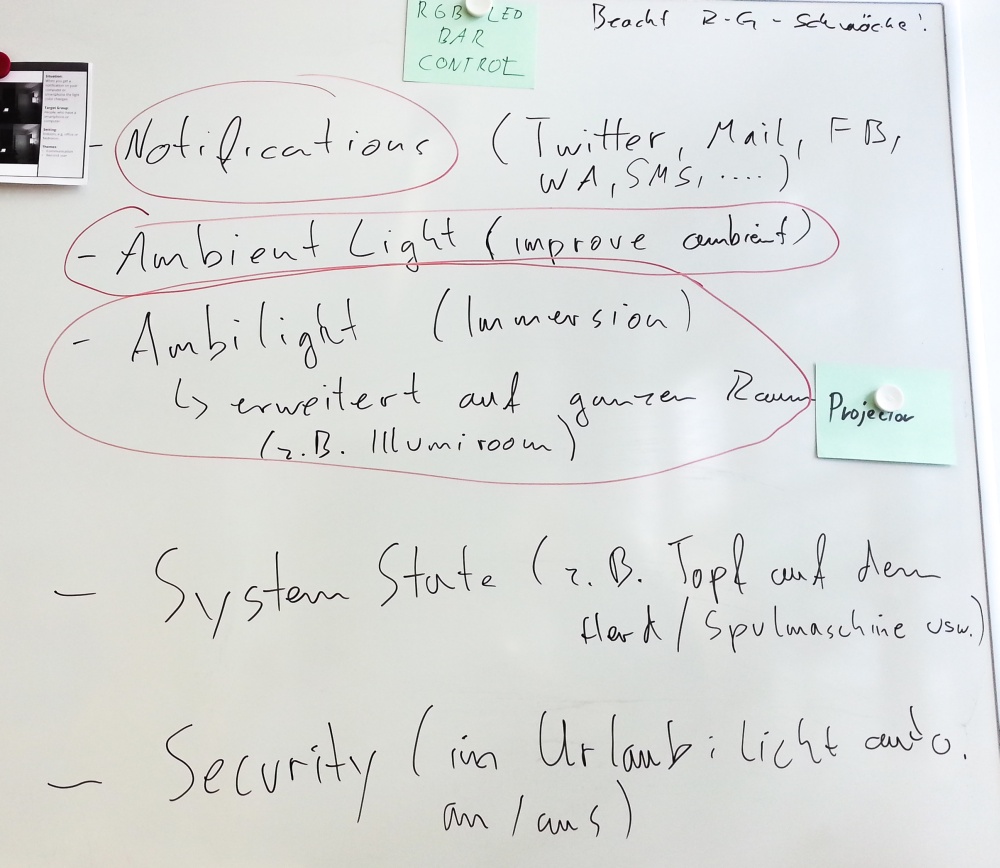 RGB LED
BAR
CONTROL
Beacht R-G-Schwäche!
- Notifications (Twitter, Mail, FB,
WA, SMS, ....)
- Ambient Light (improve ambient)
- Ambilight (Immersion)
↳ erweitert auf ganzen Raum
(z.B. Illumiroom)
Projector
- System State (z.B. Topf auf dem
Herd / Spulmaschine usw.)
- Security (im Urlaub: licht auto.
an/aus)